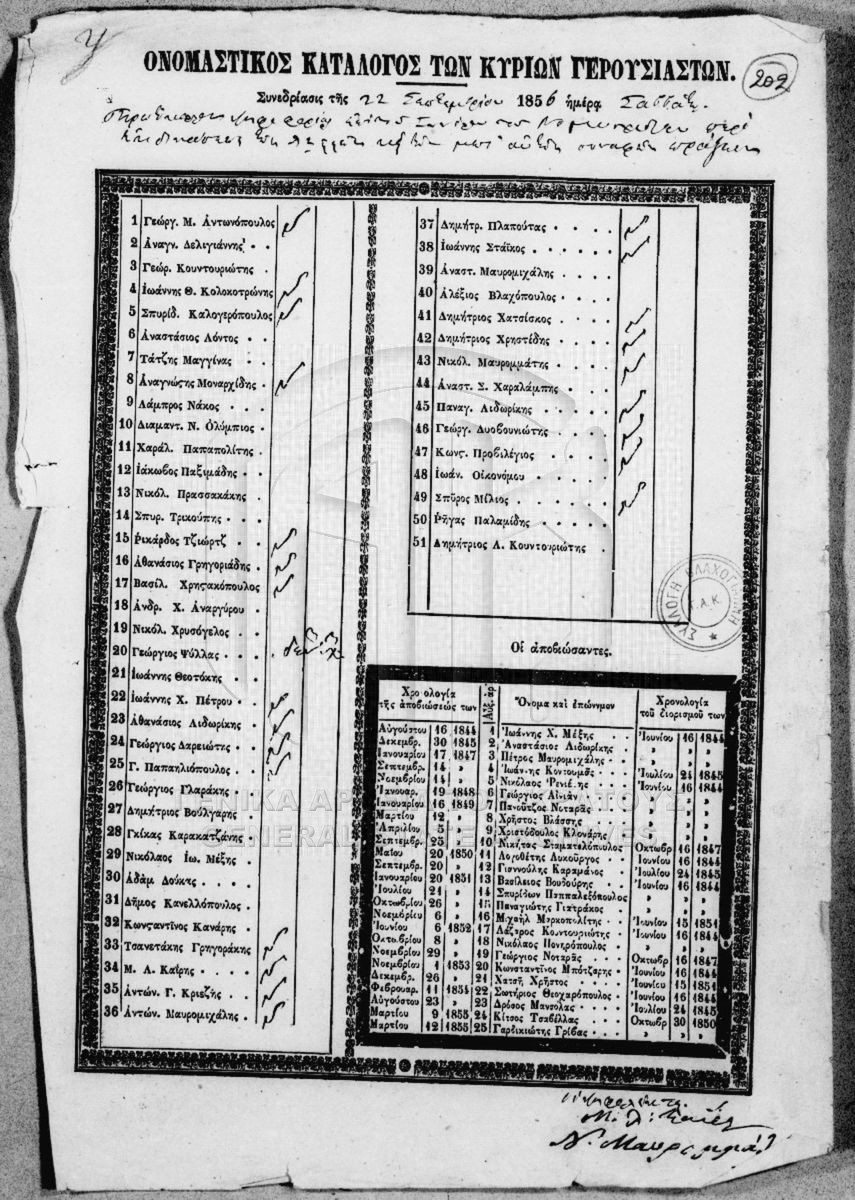 ΟΝΟΜΑΣΤΙΚΟΣ ΚΑΤΑΛΟΓΟΣ ΤΩΝ ΚΥΡΙΩΝ ΓΕΡΟΥΣΙΑΣΤΩΝ.
202
Συνεδρίασις τῆς 22 Σεπτεμβρίου 1856 ἡμέρᾳ Σαββάτῳ.
1 Γεώργ. Μ. Ἀντωνόπουλος
2 Ἀναγν. Δελιγιάννης
3 Γεώρ. Κουντουριώτης
4 Ἰωάννης Θ. Κολοκοτρώνης
5 Σπυρίδ. Καλογερόπουλος
6 Ἀναστάσιος Λόντος
7 Τάτζης Μαγγίνας
8 Ἀναγνώςης Μοναρχίδης
9 Λάμπρος Νάκος
10 Διαμαντ. Ν. Ὀλύμπιος
11 Χαράλ. Παπαπολίτης
12 Ἰάκωβος Παξιμάδης
13 Νικόλ. Πρασσακάκης
14 Σπυρ. Τρικούπης
15 Ῥικάρδος Τζιώρτζ
16 Ἀθανάσιος Γρηγοριάδης
17 Βασίλ. Χρηςακόπουλος
18 Ἀνδρ. Χ. Ἀναργύρου
19 Νικόλ. Χρυσόγελος
20 Γεώργιος Ψύλλας
21 Ἰωάννης Θεοτόκης
22 Ἰωάννης Χ. Πέτρου
23 Ἀθανάσιος Λιδωρίκης
24 Γεώργιος Δαρειώτης
25 Γ. Παπαηλιόπουλος
26 Γεώργιος Γλαράκης
27 Δημήτριος Βούλγαρης
28 Γκίκας Καρακατζάνης
29 Νικόλαος Ἰω. Μέξης
30 Ἀδὰμ Δούκας
31 Δῆμος Κανελλόπουλος
32 Κωνςαντῖνος Κανάρης
33 Τσανετάκης Γρηγοράκης
34 Μ. Λ. Καΐρης
35 Ἀντών. Γ. Κριεζῆς
36 Ἀντών. Μαυρομιχάλης
37 Δημήτρ. Πλαπούτας
38 Ἰωάννης Στάϊκος
39 Ἀναστ. Μαυρομιχάλης
40 Ἀλέξιος Βλαχόπουλος
41 Δημήτριος Χατσίσκος
42 Δημήτριος Χρηστίδης
43 Νικόλ. Μαυρομμάτης
44 Ἀναστ. Σ. Χαραλάμπης
45 Παναγ. Λιδωρίκης
46 Γεώργ. Δυοβουνιώτης
47 Κωνς. Προβιλέγιος
48 Ἰωάν. Οἰκονόμου
49 Σπῦρος Μίλιος
50 Ῥήγας Παλαμίδης
51 Δημήτριος Α. Κουντουριώτης
ΣΥΛΛΟΓΗ ΒΛΑΧΟΓΙΑΝΝΗ
Γ.Α.Κ.
Οἱ ἀποβιώσαντες.
Χρονολογία τῆς ἀποβιώσεώς των Αὔξ. ἀρ. Ὄνομα καὶ ἐπώνυμον Χρονολογία τοῦ διορισμοῦ των
Αὐγούστου 16 1844 1 Ἰωάννης Χ. Μέξης Ἰουνίου 16 1844
Δεκεμβρ. 30 1845 2 Ἀναστάσιος Λιδωρίκης » » »
Ἰανουαρίου 17 1847 3 Πέτρος Μαυρομιχάλης » » »
Σεπτεμβρ. 14 » 4 Ἰωάννης Κοντουμᾶς Ἰουλίου 24 1845
Νοεμβρίου 14 » 5 Νικόλαος Ῥενιέρης Ἰουνίου 16 1844
Ἰανουαρ. 19 1848 6 Γεώργιος Αἰνιὰν » » »
Ἰανουαρίου 16 1849 7 Πανοῦτζος Νοταρᾶς » » »
Μαρτίου 12 » 8 Χρῆστος Βλάσσης » » »
Ἀπριλίου 5 » 9 Χριστόδουλος Κλονάρης » » »
Σεπτεμβρ. 25 » 10 Νικήτας Σταματελόπουλος Ὀκτωβρ 16 1847
Μαΐου 20 1850 11 Λογοθέτης Λυκοῦργος Ἰουνίου 16 1844
Σεπτεμβρ. 20 » 12 Γιαννούλης Καραμάνος Ἰουλίου 24 1845
Ἰανουαρίου 20 1851 13 Βασίλειος Βουδούρης Ἰουνίου 16 1844
Ἰουλίου 21 » 14 Σπυρίδων Παππαλεξόπουλος » » »
Ὀκτωβρίου 26 » 15 Παναγιώτης Γιατράκος » » »
Νοεμβρίου 6 » 16 Μιχαὴλ Μαρκοπολίτης Ἰουνίου 15 1851
Ἰουνίου 6 1852 17 Λάζαρος Κουντουριώτης Ἰουνίου 16 1844
Ὀκτωβρίου 8 » 18 Νικόλαος Πονηρόπουλος » » »
Νοεμβρίου 29 » 19 Γεώργιος Νοταρᾶς Ὀκτωβρ 16 1847
Νοεμβρίου 1 1853 20 Κωνσταντῖνος Μπότζαρης Ἰουνίου 16 1844
Δεκεμβρ. 26 » 21 Χατσῆ Χρῆστος Ἰουνίου 15 1851
Φεβρουαρ. 11 1854 22 Σωτήριος Θεοχαρόπουλος Ἰουνίου 16 1844
Αὐγούστου 23 » 23 Δρόσος Μανσόλας Ἰουλίου 24 1845
Μαρτίου 9 1855 24 Κίτσος Τσαβέλλας Ὀκτωβρ 30 1850
Μαρτίου 12 1855 25 Γαρδικιώτης Γρίβας » » »
ΓΕΝΙΚΑ ΑΡΧΕΙΑ ΤΟΥ ΚΡΑΤΟΥΣ
GENERAL STATE ARCHIVES